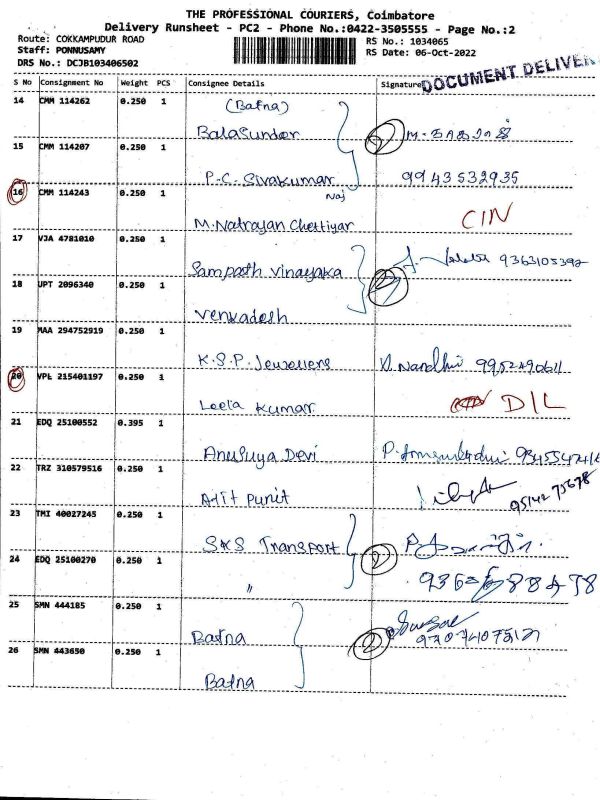 THE PROFESSIONAL COURIERS, Coimbatore
Delivery Runsheet - PC2 - Phone No.:0422-3505555 - Page No.:2
Route: COKKAMPUDUR ROAD
RS No.: 1034065
Staff: PONNUSAMY
RS Date: 06-Oct-2022
DRS No.: DCJB103406502
DOCUMENT DELIVER
S No Consignment No Weight PCS Consignee Details Signature
14 CMM 114262 0.250 1 (Bafna)
Balasunder
15 CMM 114207 0.250 1
P.C. Sivakumar 9943532935
Naj
16 CMM 114243 0.250 1 CIN
M.Natrayan Chettiyar
17 VJA 4781010 0.250 1
Sampath Vinayaka 9363105392
18 UPT 2096340 0.250 1 2
Venkadesh
19 MAA 294752919 0.250 1
K.S.P. Jewellers Nandhi
20 VPL 215401197 0.250 1
Leela Kumar D/L
21 EDQ 25100552 0.395 1
Anusuya Devi
22 TRZ 310579516 0.250 1
Ajit Punit 9514275678
23 TMI 40027245 0.250 1
SKS Transport 2
24 EDQ 25100270 0.250 1
"
25 SMN 444185 0.250 1
Bafna 2
26 SMN 443650 0.250 1
Bafna